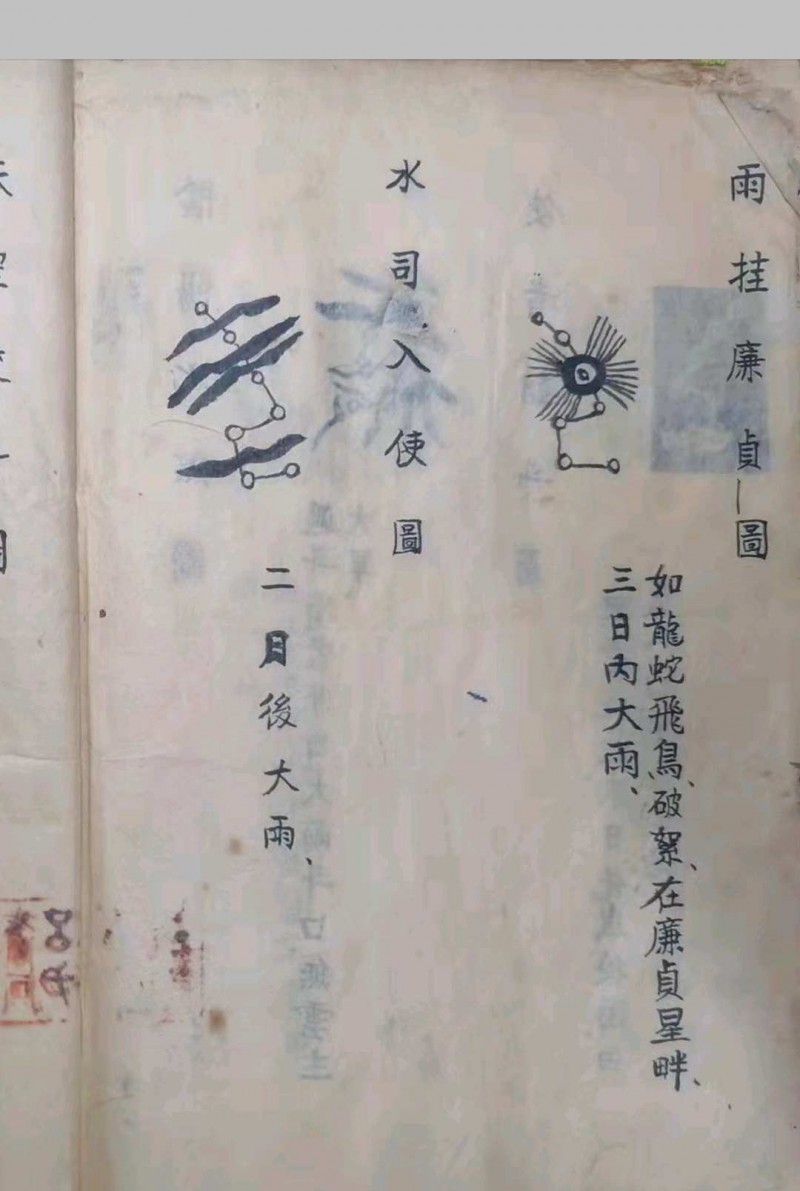 雨挂廉貞圖
如龍蛇飛鳥、破絮、在廉貞星畔、
三日內大雨、
水司入使圖
二月後大雨、